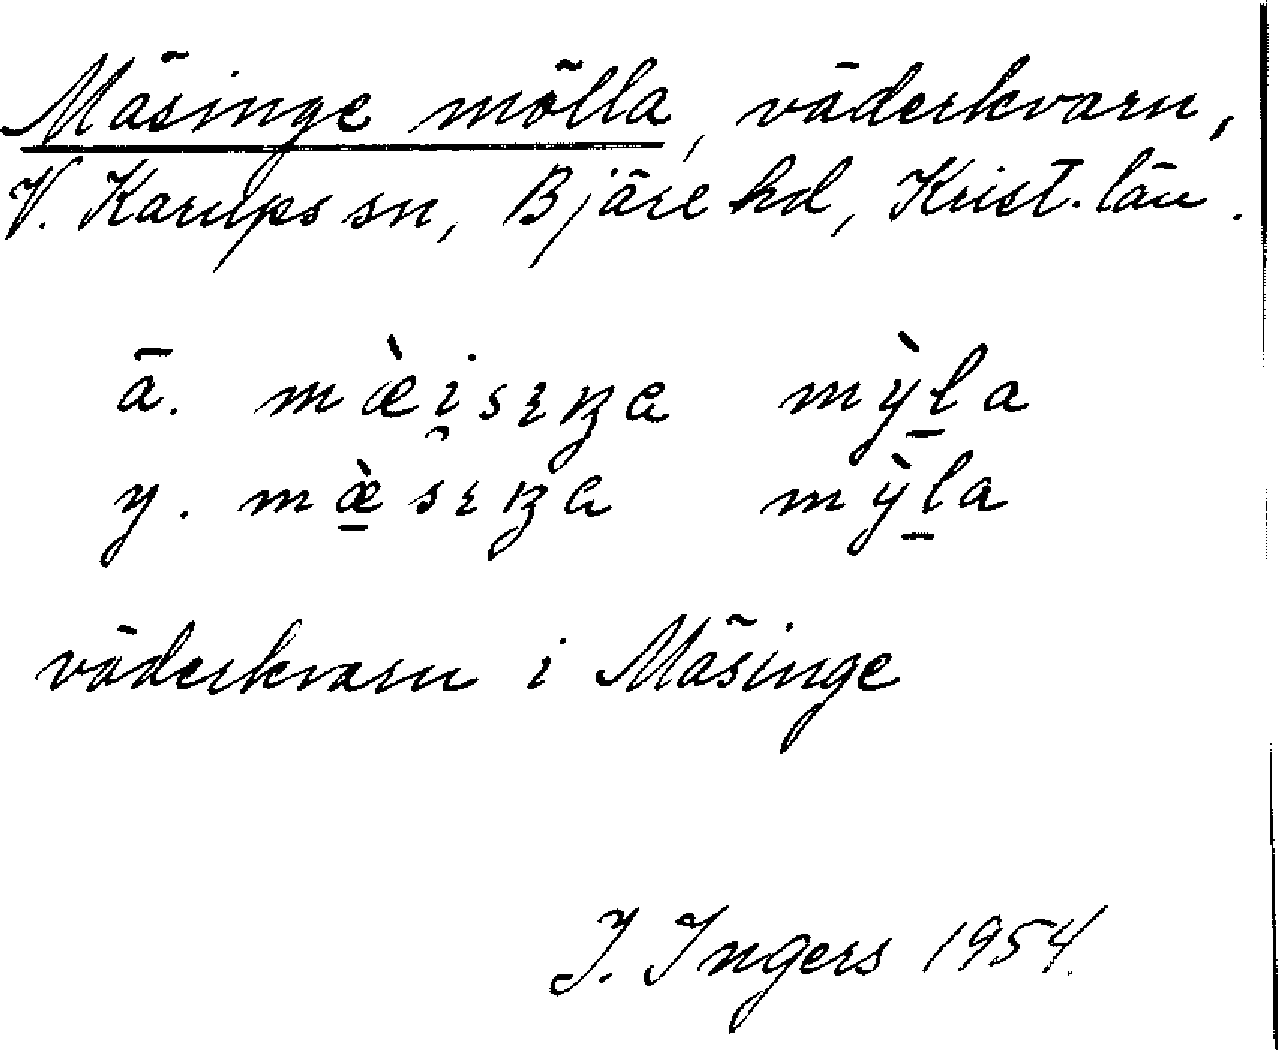 Mäsinge mölla, väderkvarn,
V. Karups sn, Bjäre hd, Krist. län.
ä. mæ̀i̯sɪŋa mỳl̠a
y. mæ̠̀sɪŋa mỳl̠a
väderkvarn i Mäsinge
I. Ingers 1954.